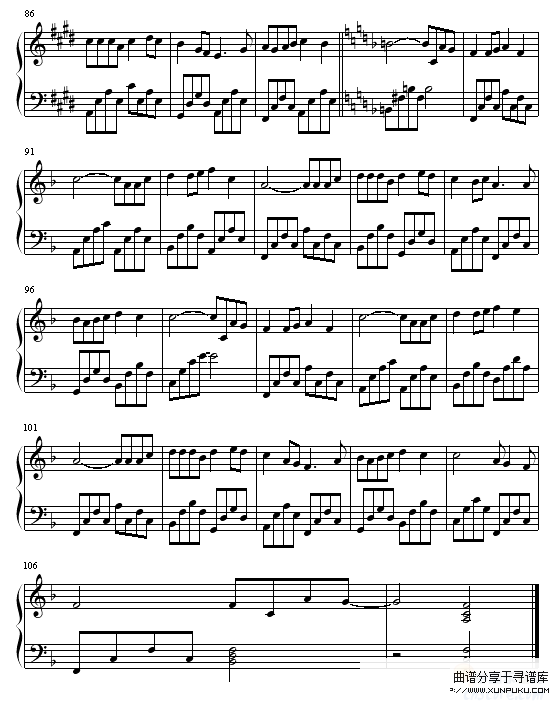 86
91
96
101
106
曲谱分享于寻谱库
?://WWW.XUNPUKU.COM